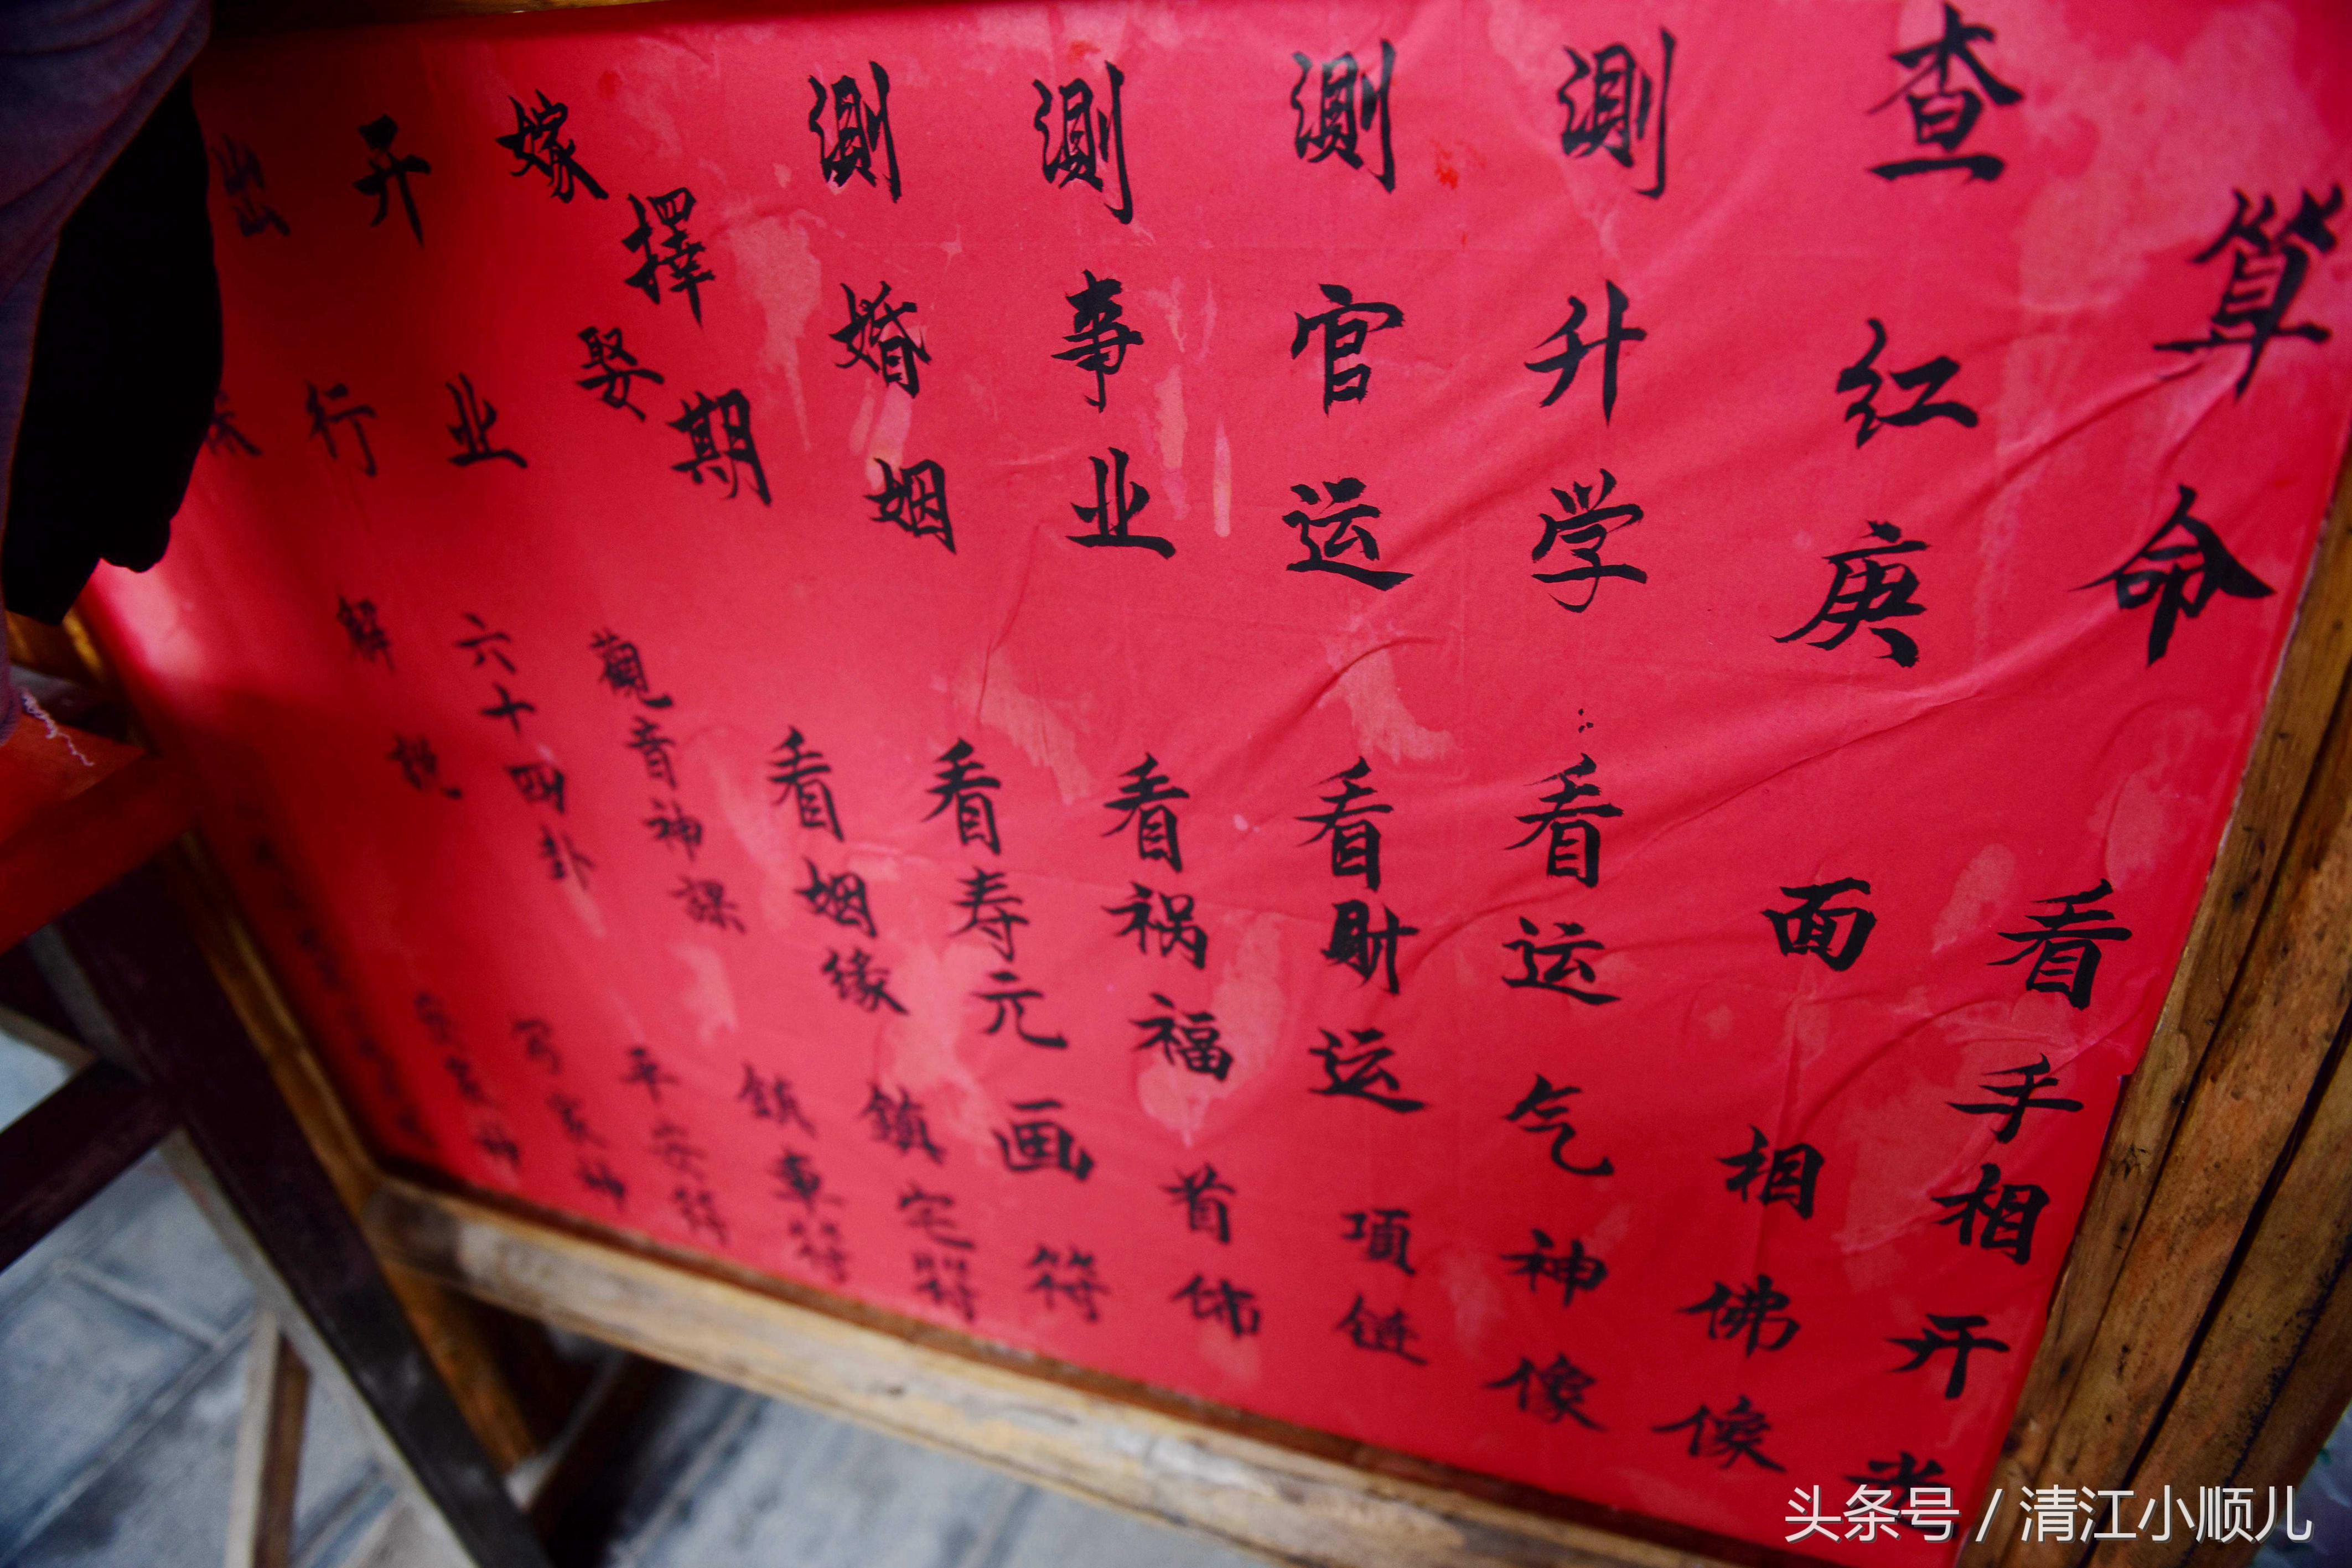 算命
查红庚
测升学
测官运
测事业
测婚姻
擇期
嫁娶
开业
出行
看手相
面相
看运气
看财运
看祸福
看寿元
看姻缘
觀音神課
六十四卦
解说
开光
佛像
神像
項链
首饰
画符
鎮宅符
鎮車符
平安符
头条号 / 清江小顺儿